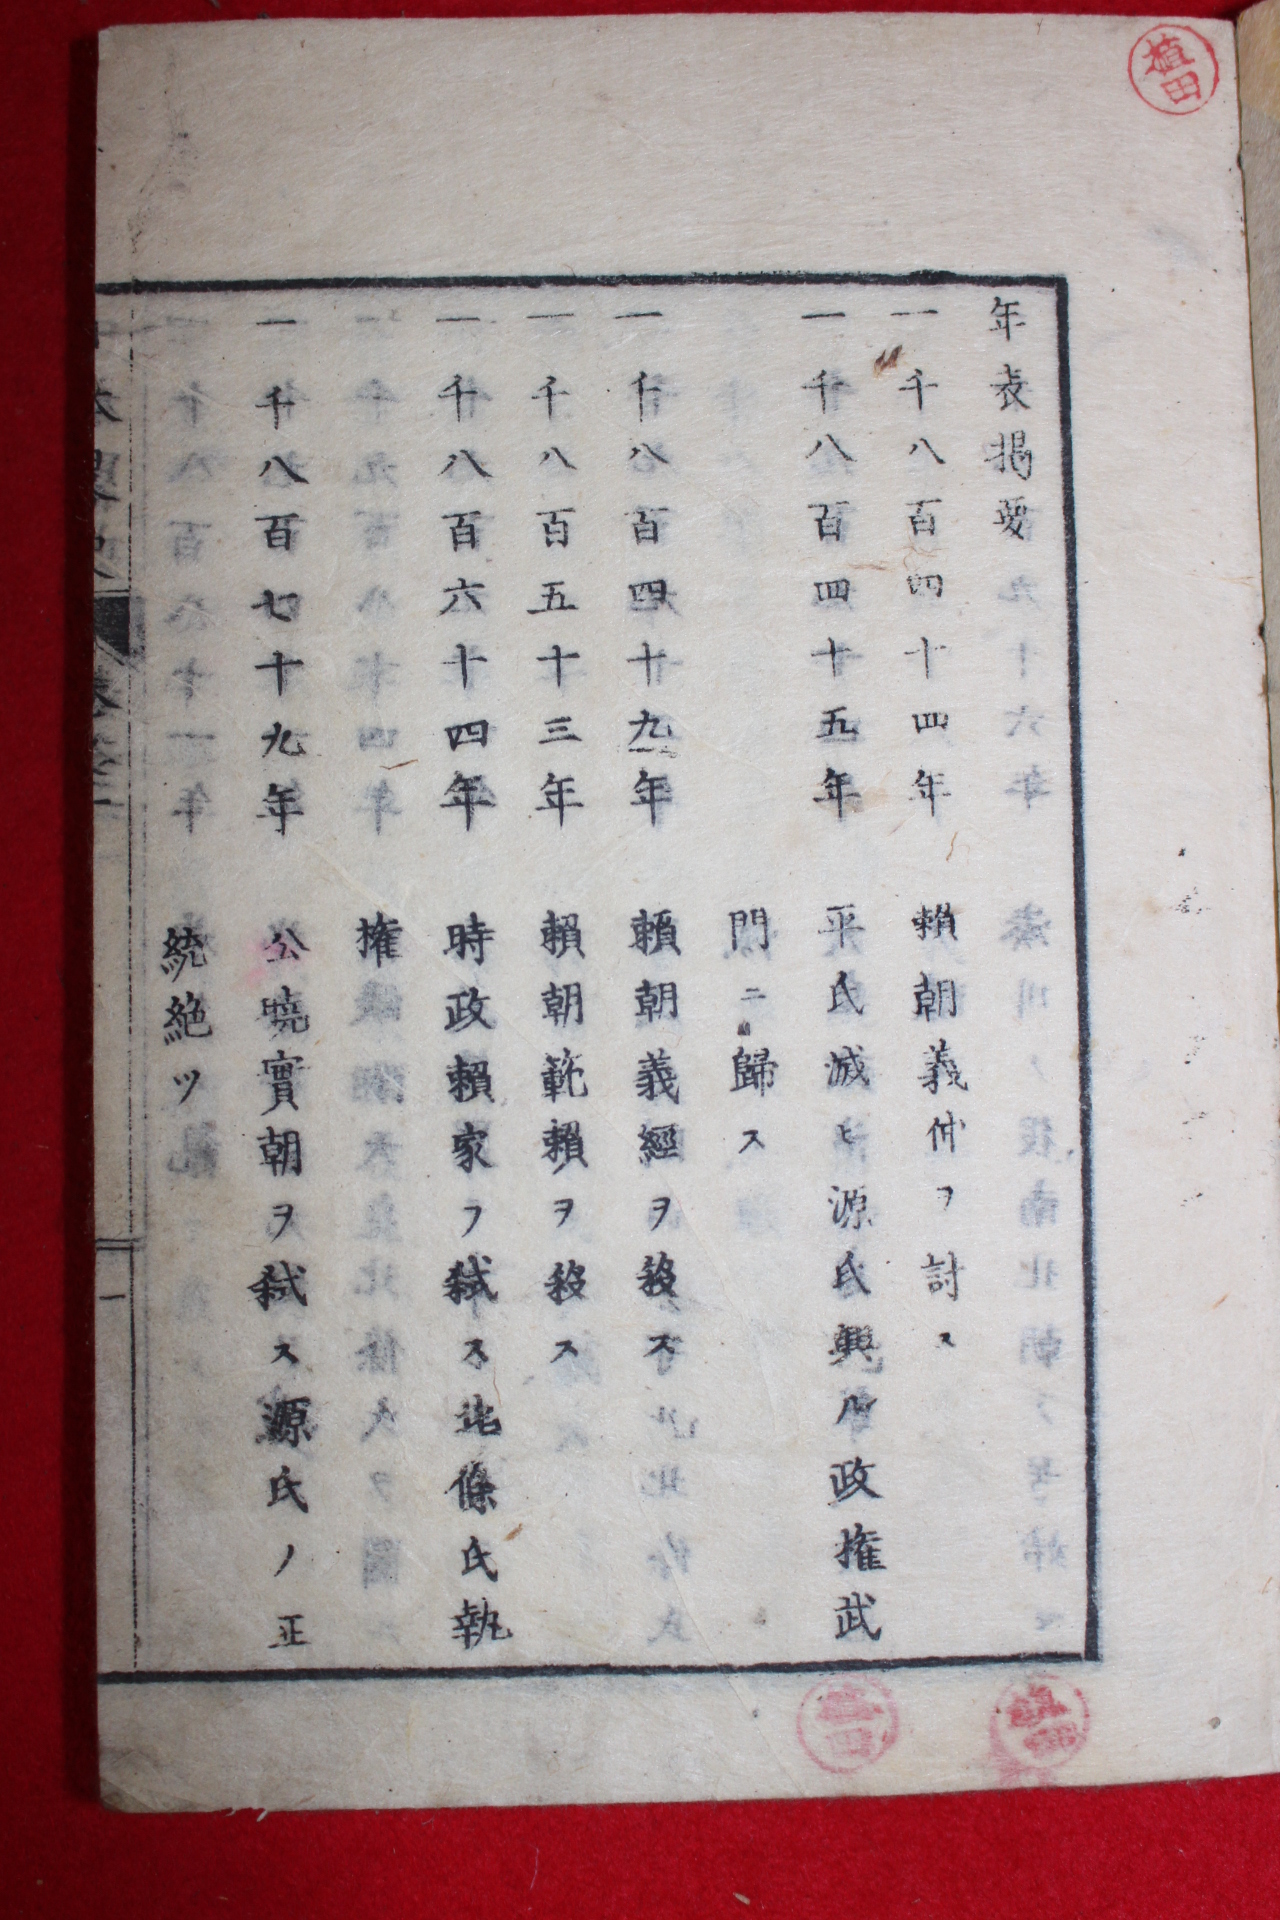 植田
年表揭要
一千八百四十四年　賴朝義仲ヲ討ス
一千八百四十五年　平氏滅ヒ源氏興ル政權武
門ニ歸ス
一千八百四十九年　賴朝義經ヲ殺ス
一千八百五十三年　賴朝範賴ヲ殺ス
一千八百六十四年　時政賴家ヲ弑ス北條氏執
權
一千八百七十九年　公曉實朝ヲ弑ス源氏ノ正
統絕ツ
一